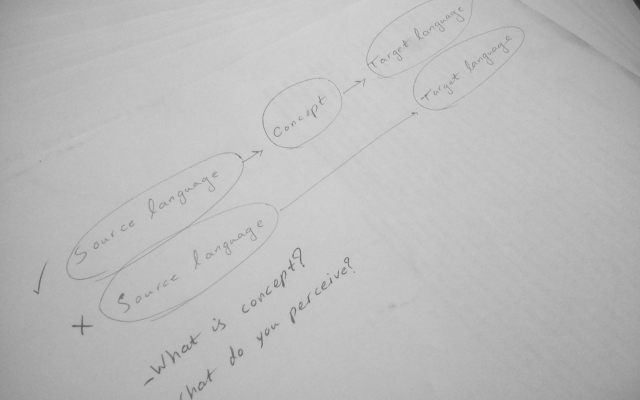 ✓ Source language → Concept → Target language
+ Source language → Target language
- What is concept?
What do you perceive?